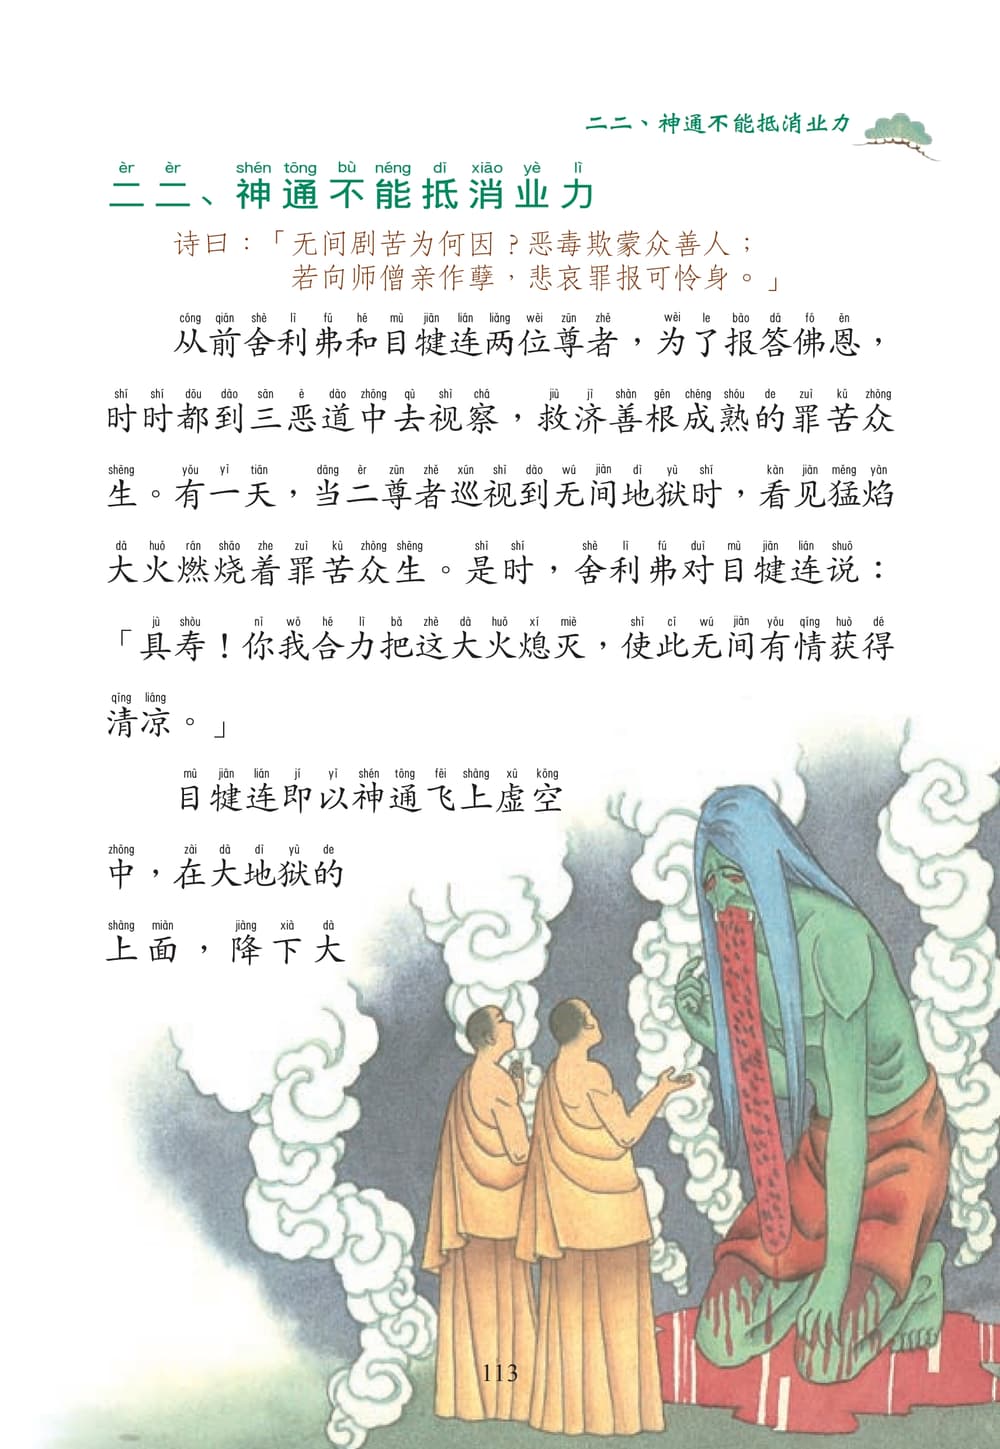 二二、神通不能抵消业力
èr èr shén tōng bù néng dǐ xiāo yè lì
二二、神通不能抵消业力
诗曰：「无间剧苦为何因？恶毒欺蒙众善人；
若向师僧亲作孽，悲哀罪报可怜身。」
cóng qián shè lì fú hé mù jiān lián liǎng wèi zūn zhě wèi le bào dá fó ēn
从前舍利弗和目犍连两位尊者，为了报答佛恩，
shí shí dōu dào sān è dào zhōng qù shì chá jiù jǐ shàn gēn chéng shóu de zuì kǔ zhòng
时时都到三恶道中去视察，救济善根成熟的罪苦众
shēng yǒu yì tiān dāng èr zūn zhě xún shì dào wú jiàn dì yù shí kàn jiàn měng yàn
生。有一天，当二尊者巡视到无间地狱时，看见猛焰
dà huǒ rán shāo zhe zuì kǔ zhòng shēng shì shí shè lì fú duì mù jiān lián shuō
大火燃烧着罪苦众生。是时，舍利弗对目犍连说：
jù shòu nǐ wǒ hé lì bǎ zhè dà huǒ xí miè shǐ cǐ wú jiàn yǒu qíng huò dé
「具寿！你我合力把这大火熄灭，使此无间有情获得
qīng liáng
清凉。」
mù jiān lián jí yǐ shén tōng fēi shàng xū kōng
目犍连即以神通飞上虚空
zhōng zài dà dì yù de
中，在大地狱的
shàng miàn jiàng xià dà
上面，降下大
113